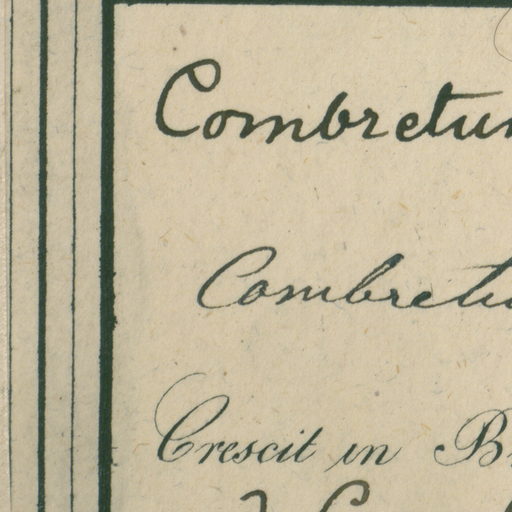 Combretum
Combretu
Crescit in B